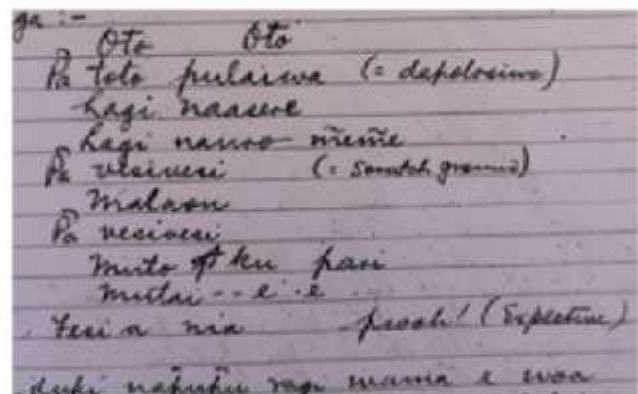 ga :-
Oto Oto
P̃a toto pulaiwa (=
Lagi naasere
Lagi nauro m̃em̃e
P̃a vesivesi (= Scratch ground)
Malaon
P̃a vesivesi
Muto ku pari
Mutai - - e - e
Fesi a nia pooh! (Expletive)
duki nap̃up̃u ragi wama e woa